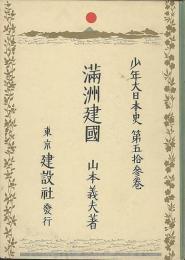 少年大日本史 第五拾参巻
滿洲建國
山本義夫著
東京 建設社 發行